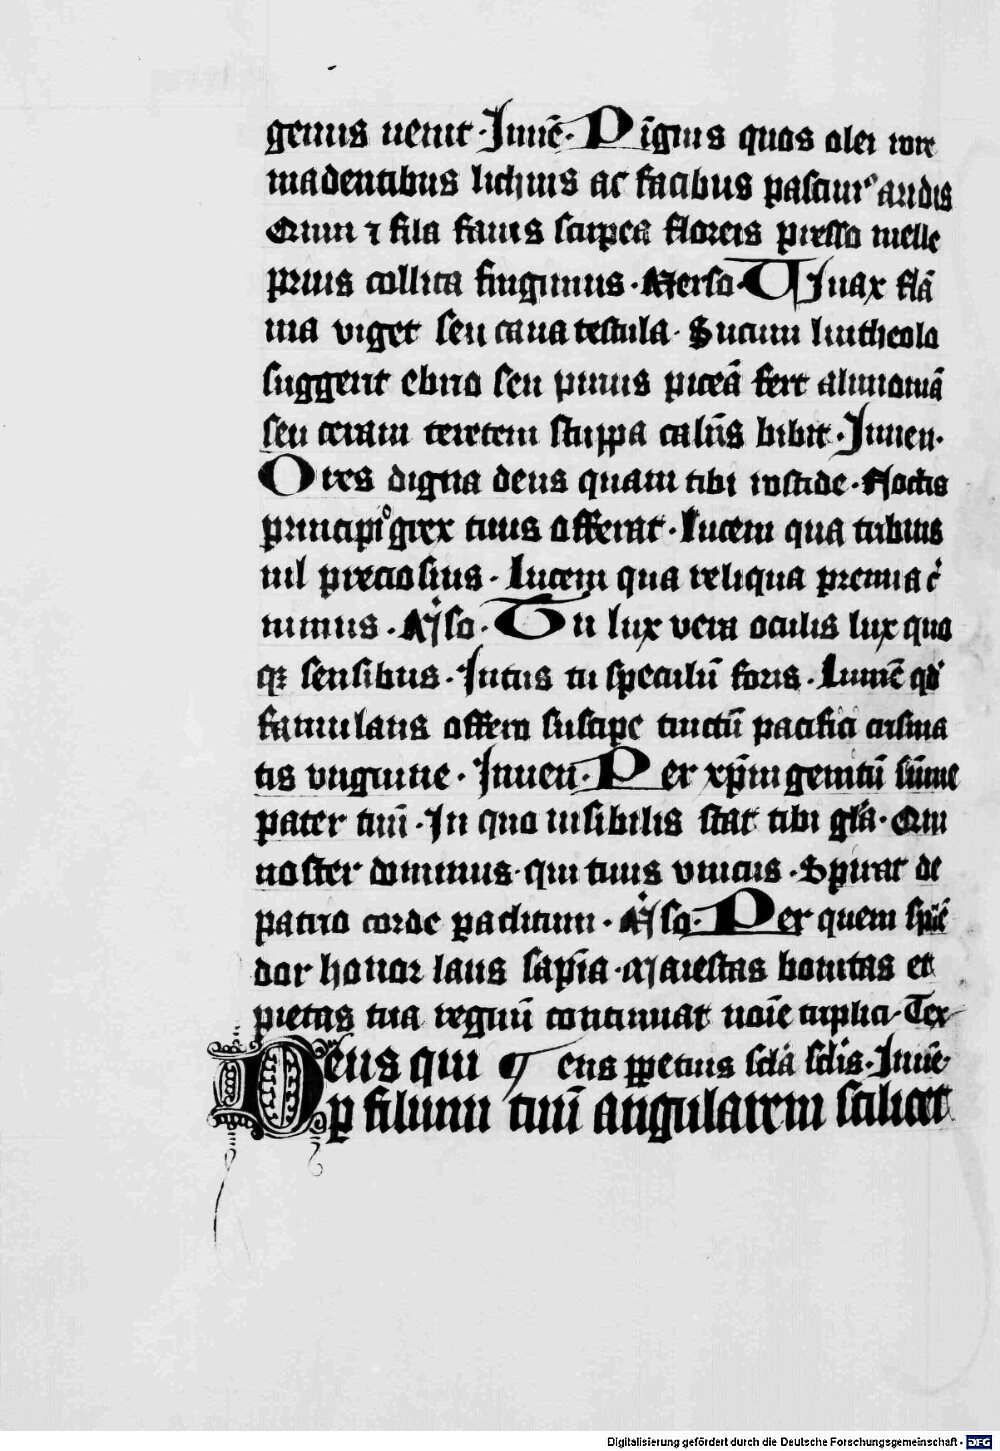 genus uenit · Inuē · Pīgnis quos olei rore
madentibus lichinis ac facibus pascimꝰ aridis
Quin ⁊ fila fauis scirpea floreis presso melle
prius collita fingimus · Verso · Viuax flā
ma viget seu caua testula · Sucum lintheolo
suggerit ebrio seu pinus piceā fert alimoniā
seu ceram teretem stuppa calēs bibit · Inuen ·
O res digna deus quam tibi roscide · Noctis
principiͦ grex tuus offerat · Lucem qua tribuis
nil preciosius · Lucem qua reliqua premia c̄
nimus · Rͥso · Tu lux vera oculis lux quo
qꝫ sensibus · Intus tu speculū foris · Lumē qd̓
famulans offero suscipe tinctū pacifici crisma
tis vnguine · Inuen · Per xp̄m genitū sūme
pater tuū · In quo uisibilis stat tibi glā · Qui
noster dominus · qui tuus vnicus · Spirat de
patrio corde paclitum · Rͥso · Per quem splē
dor honor laus sapīa · Maiestas bonitas et
pietas tua regnū continuat noīe triplici · Tex
Deus qui tens ꝑpetuis sclā sclīs · Inuē ·
ꝑ filium tuū angularem scilicet
Digitalisierung gefördert durch die Deutsche Forschungsgemeinschaft - DFG